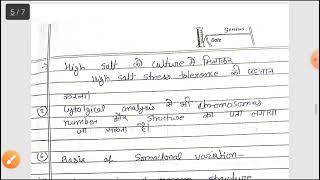 5 / 7
Date
→ High salt को culture में मिलाकर
High salt stress tolerance की पहचान
करना।
Cytolgical analysis से भी chromosomes
number और structure का पता लगाया
जा सकता है।
(6) Basis of Somaclonal variation-
structure